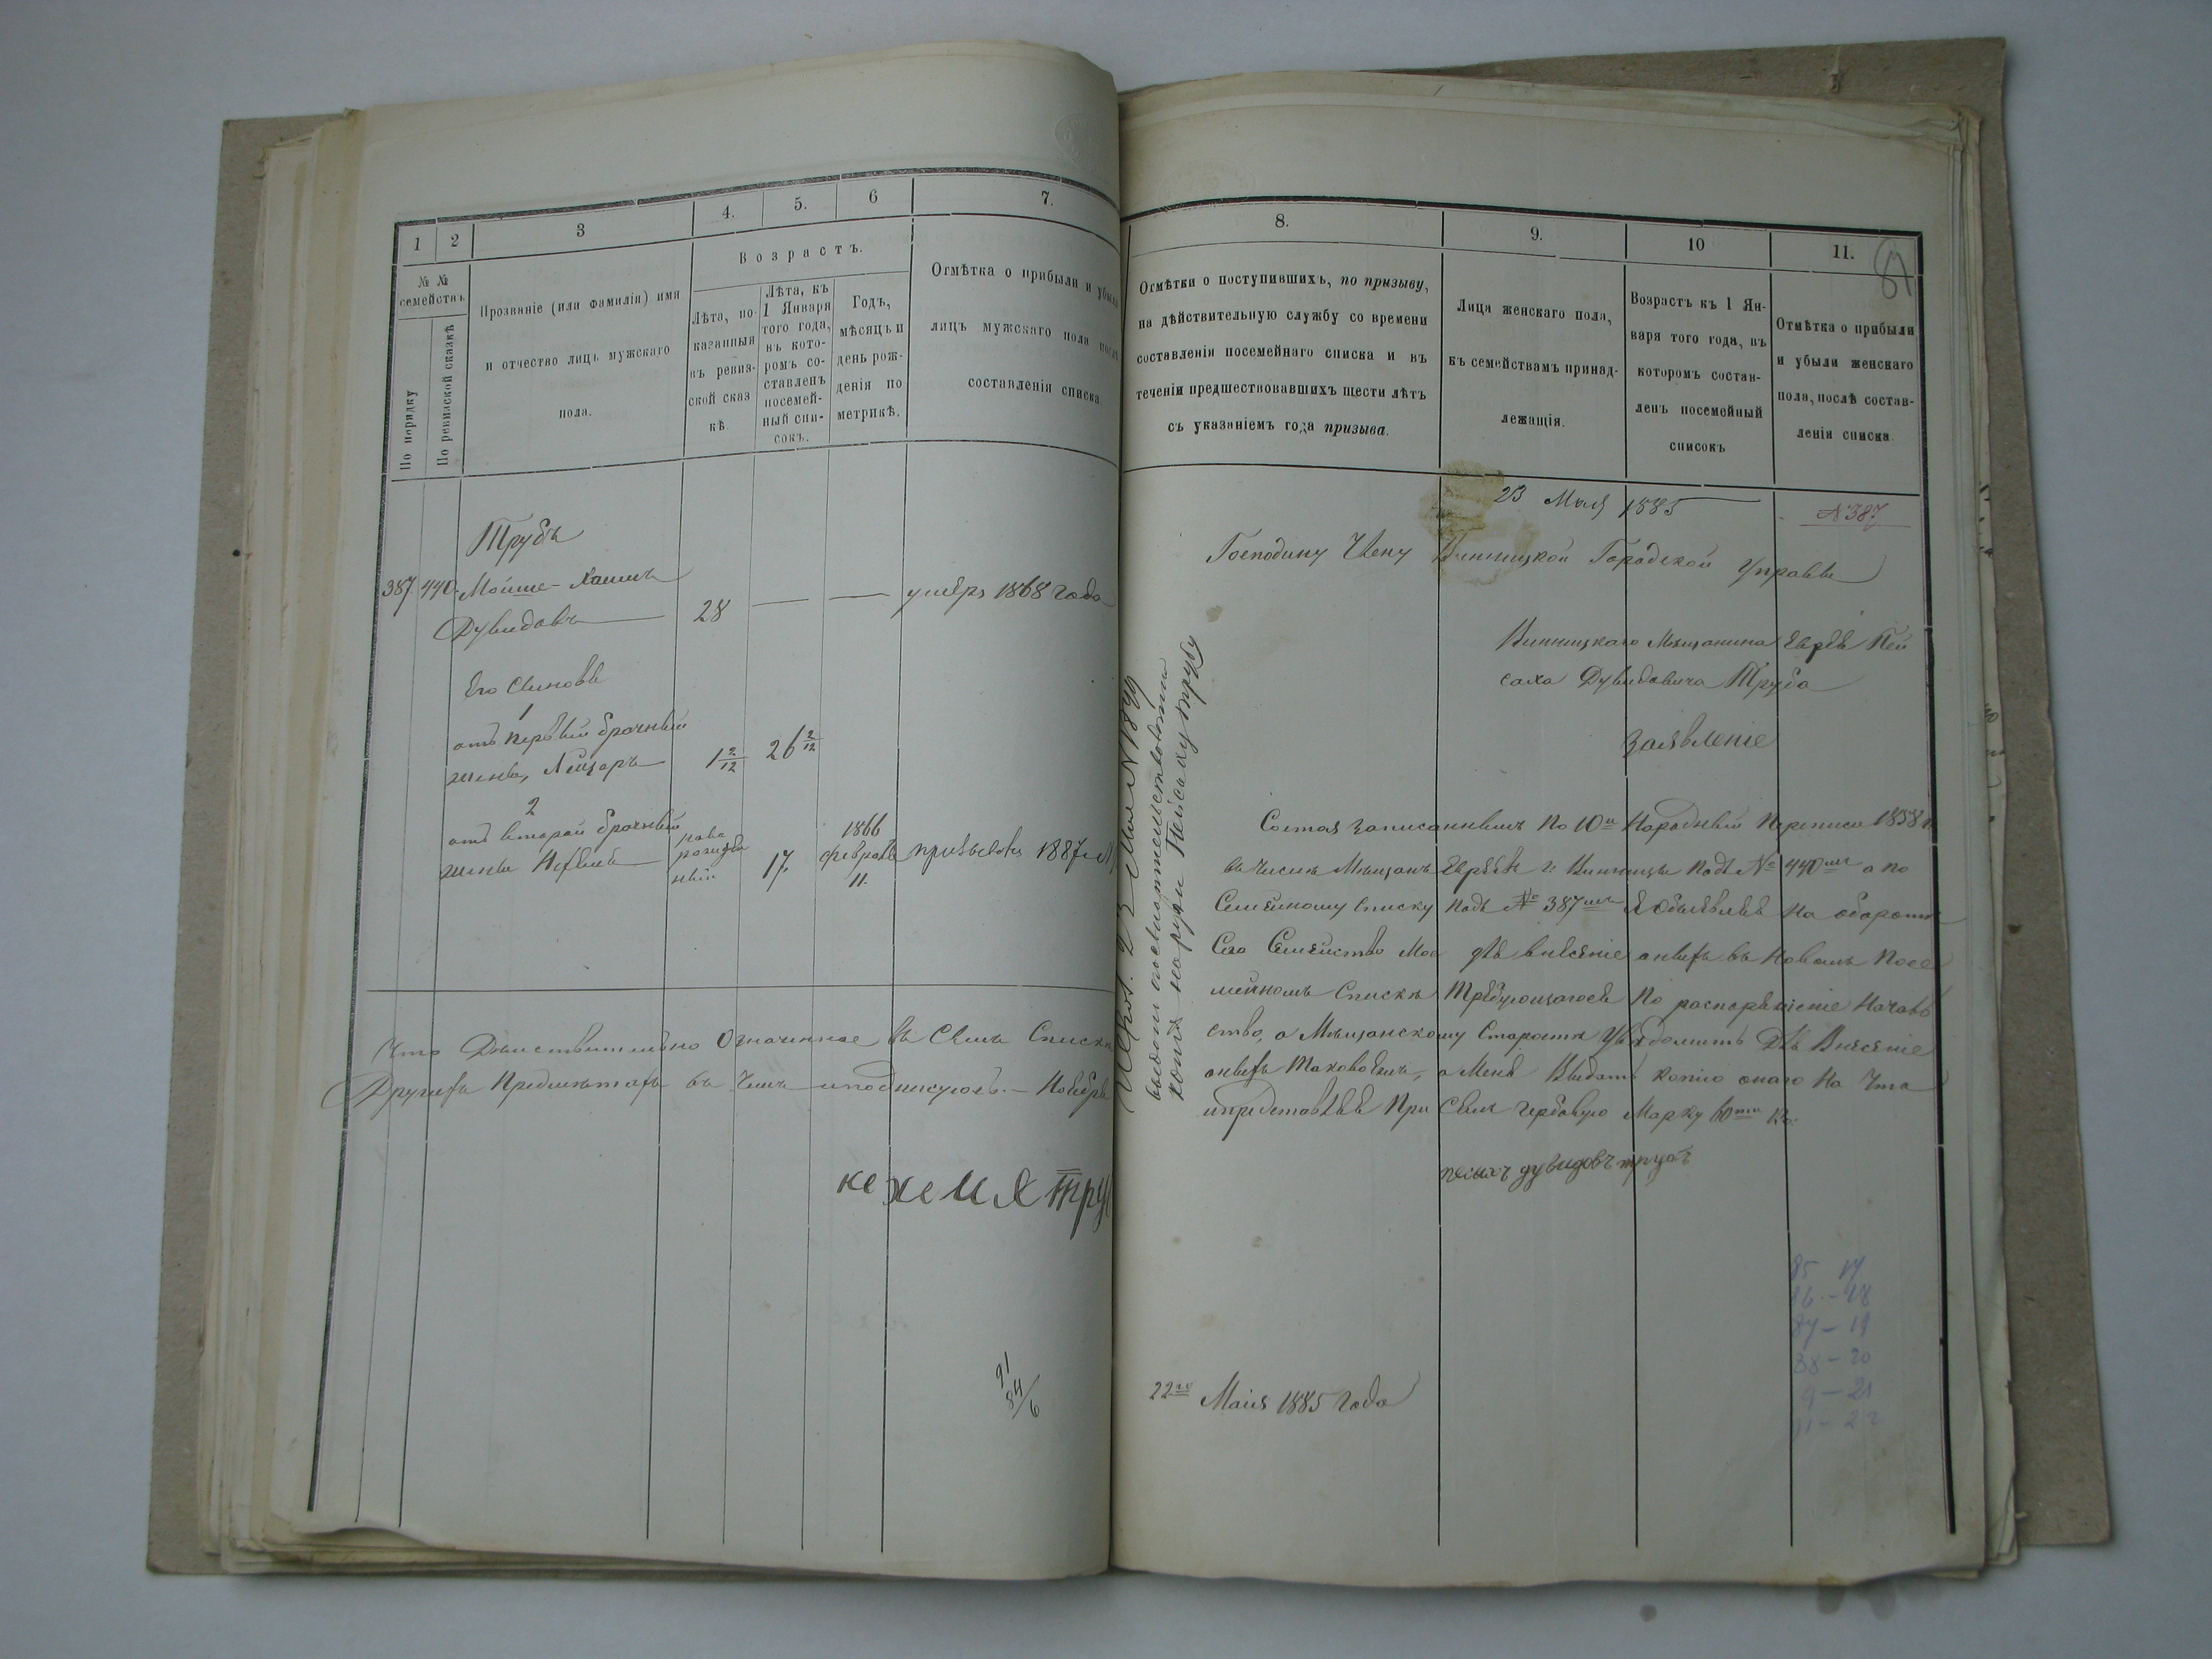 1
2
3
4.
5.
6
7.
№ №
семействъ
По порядку
По ревизской сказкѣ
Прозваніе (или фамилія) имя
и отчество лицъ мужскаго
пола.
Возрастъ.
Лѣта, по-
казанныя
въ ревиз-
ской сказ
кѣ
Лѣта, къ
1 Января
того года,
въ кото-
ромъ со-
ставленъ
посемей-
ный спи-
сокъ.
Годъ,
мѣсяцъ и
день рож-
денія по
метрикѣ.
Отмѣтка о прибыли и убыли
лицъ мужскаго пола послѣ
составленія списка.
Трубъ
387 440 Мойше-Хаимъ
Дувидовъ 28 — — умеръ 1868 года
Его сыновья
1
отъ первой брачный
жены, Лейзоръ 1 2/12 26 2/12
2
отъ второй брачный
жены ново
рожде
ный 17. 1866
февраля
11. 1887
Что Дѣйствительно Означенное въ Семъ Списке
Другихъ въ Чемъ и подписуюсь.-
труб
91
84/6
8.
9.
10
11.
Отмѣтки о поступившихъ, по призыву,
на дѣйствительную службу со времени
составленія посемейнаго списка и въ
теченіи предшествовавшихъ шести лѣтъ
съ указаніемъ года призыва.
Лица женскаго пола,
къ семействамъ принад-
лежащія.
Возрастъ къ 1 Ян-
варя того года, въ
которомъ состав-
ленъ посемейный
списокъ
Отмѣтка о прибыли
и убыли женскаго
пола, послѣ состав-
ленія списка.
23 Мая 1885
№ 387
Господину Члену Винницкой Городской Управы
Винницкаго Мещанина Еврея Пей
саха Дувидовича Труба
Заявленіе
Состоя Записаннымъ По 10й Народный Переписи 1858 г.
въ числѣ Мещанъ Евреевъ г. Винницы Подъ № 440мъ а по
Семейному Списку Подъ № 387мъ Я Объявляя На обороте
Сего Семейство Мое для внесеніе оныхъ въ Новомъ Посе
мейномъ Списке Требующагося По распоряженіе Началь
ство, а Мещанскому Старосте Уведомить Для Внесеніе
оныхъ Таковоемъ, а Меня Выдать копію онаго На Что
и представляя При Семъ Гербовую Марку 60ти к.
пейсахъ дувидовъ трубъ
22го Маія 1885 Года
85 17
86 - 18
87 - 19
88 - 20
9 - 21
91 - 22
23 Мая N 1899
копія на руки Пейсаху Трубу